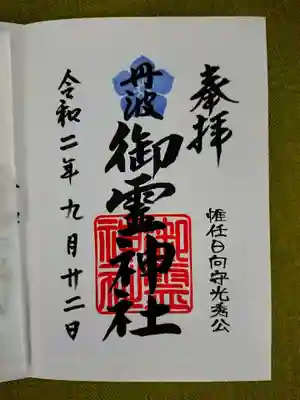 奉拝
惟任日向守光秀公
丹波
御霊神社
令和二年九月廿二日
御霊神社